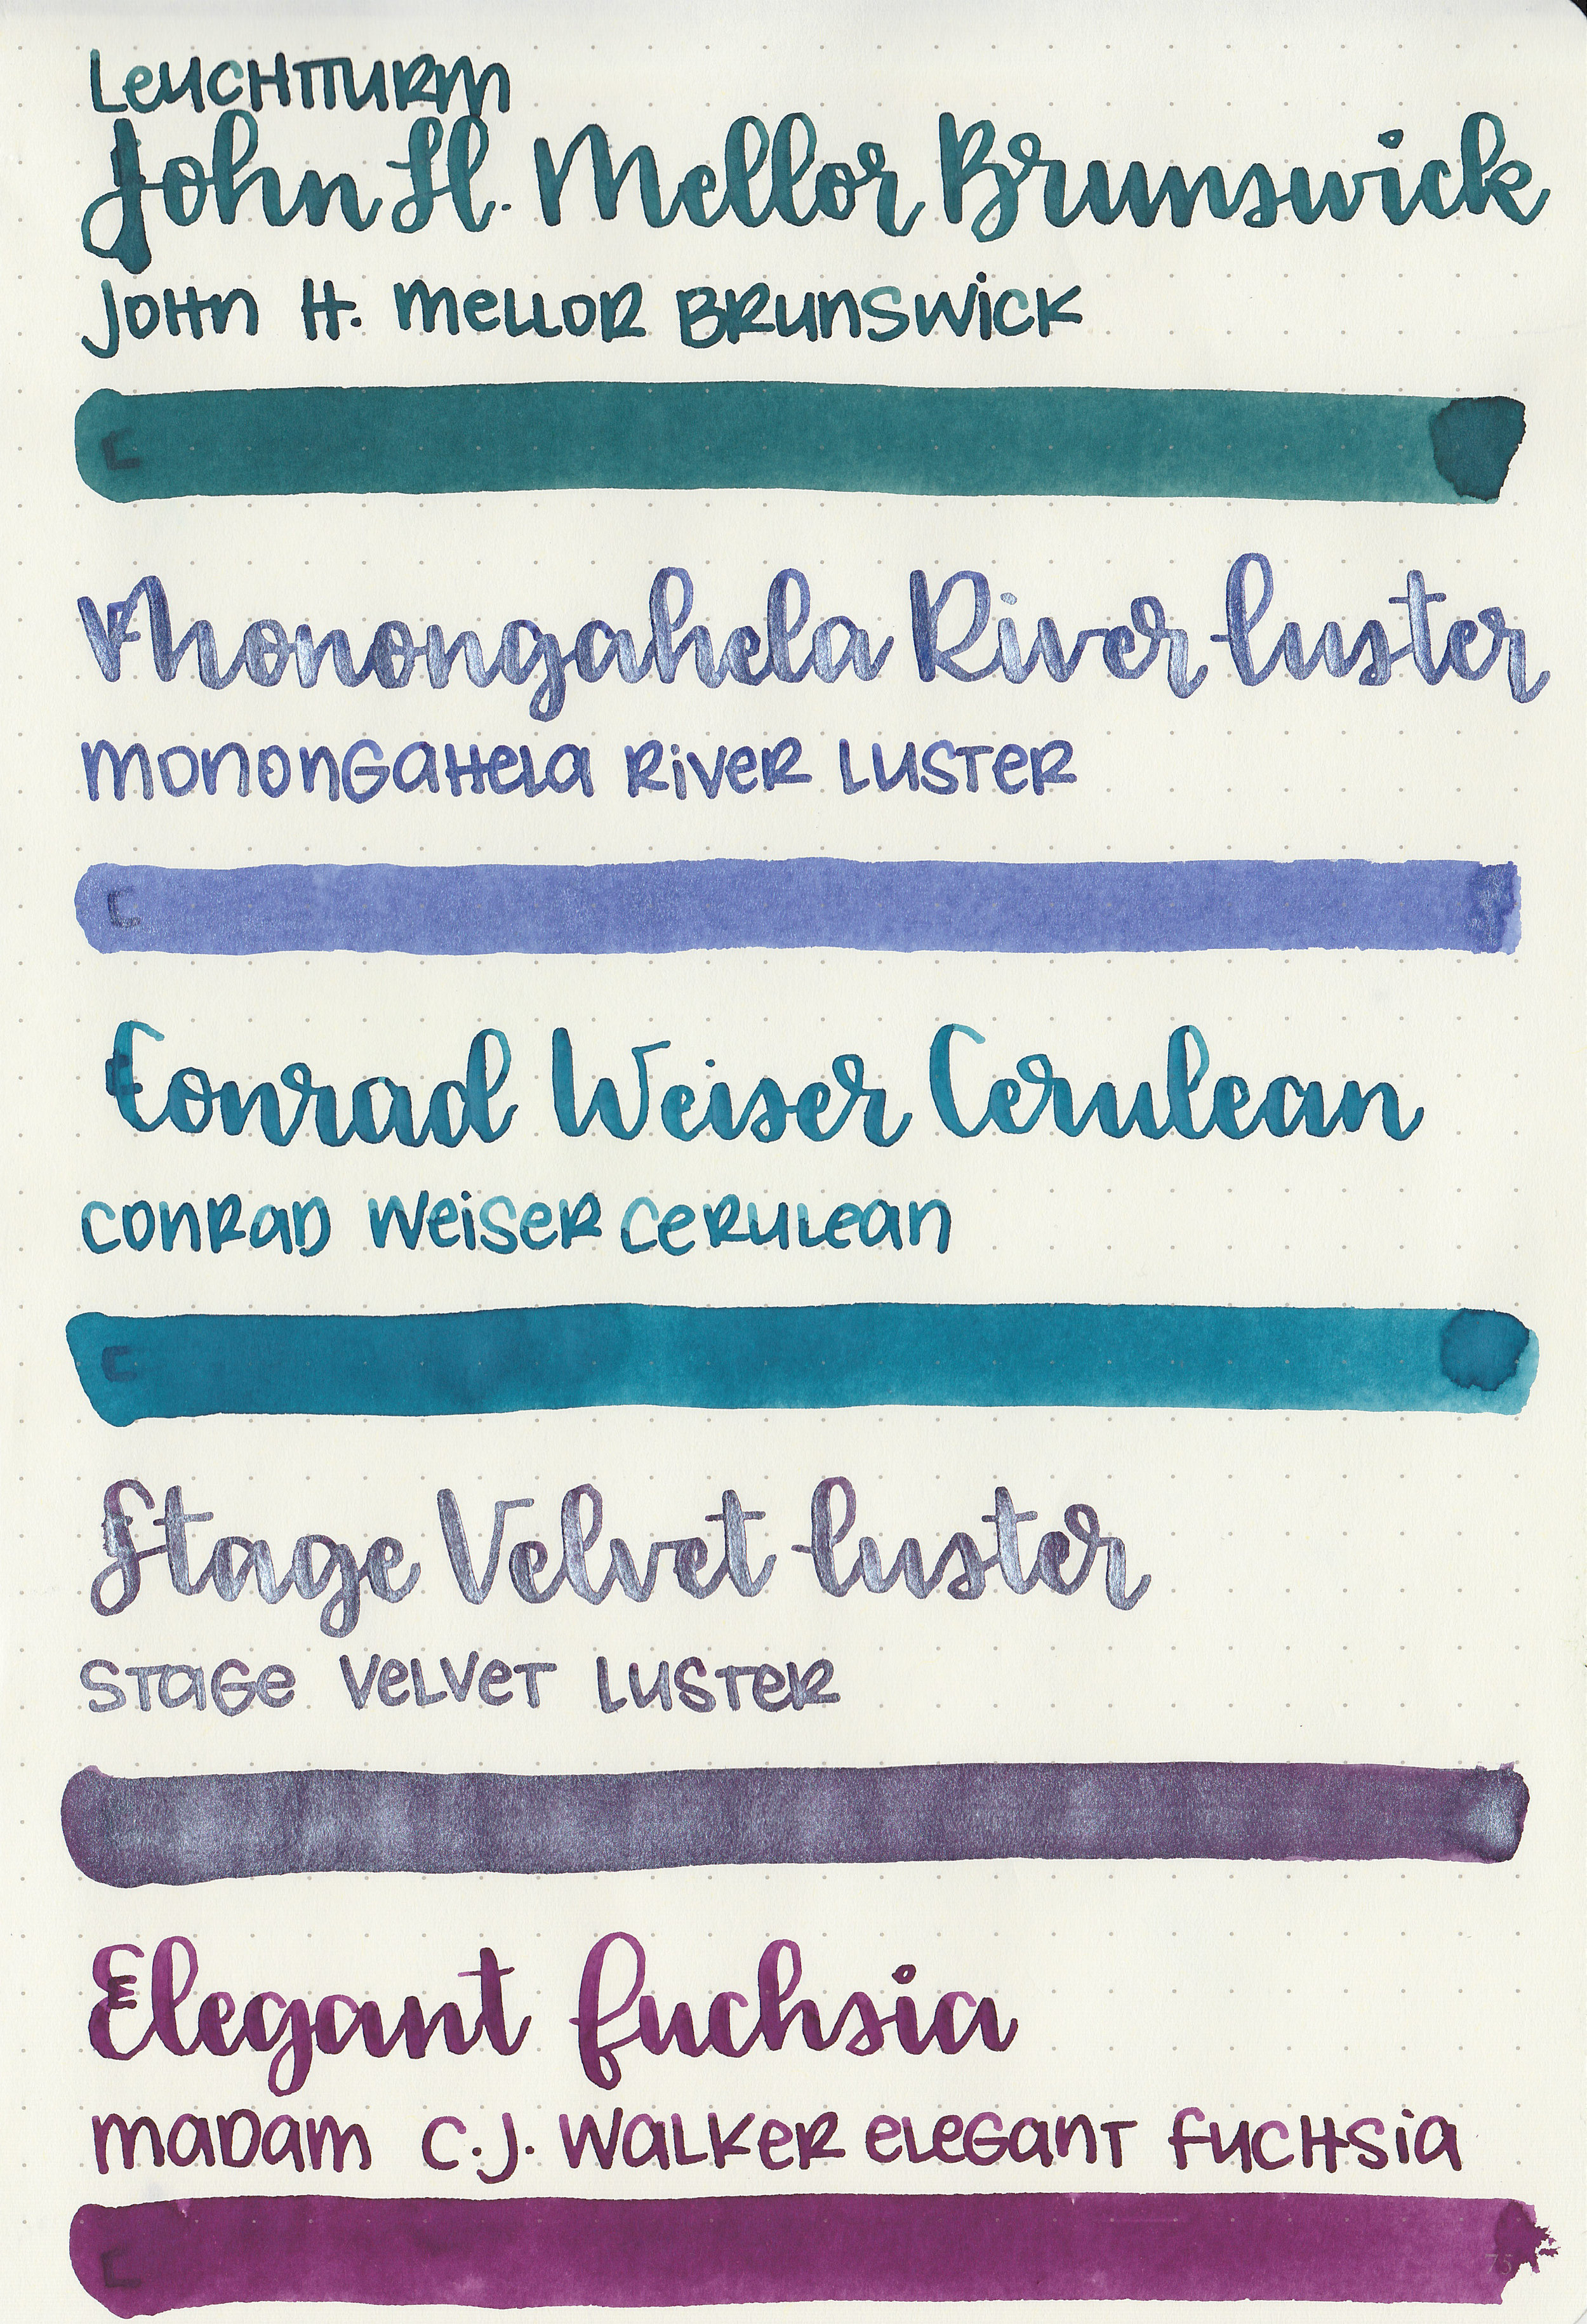 Leuchtturm
John H. Mellor Brunswick
John H. Mellor Brunswick
Monongahela River luster
Monongahela River Luster
Conrad Weiser Cerulean
Conrad Weiser Cerulean
Stage Velvet luster
Stage Velvet Luster
Elegant fuchsia
Madam C.J. Walker Elegant Fuchsia
75